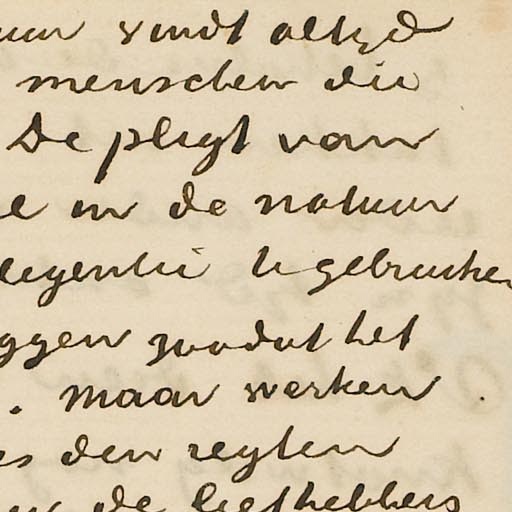 vindt altyd
menschen die
De pligt van
in de natuur
te gebruiken
ggen zoodat het
. maar werken .
es den regten
de liefhebbers